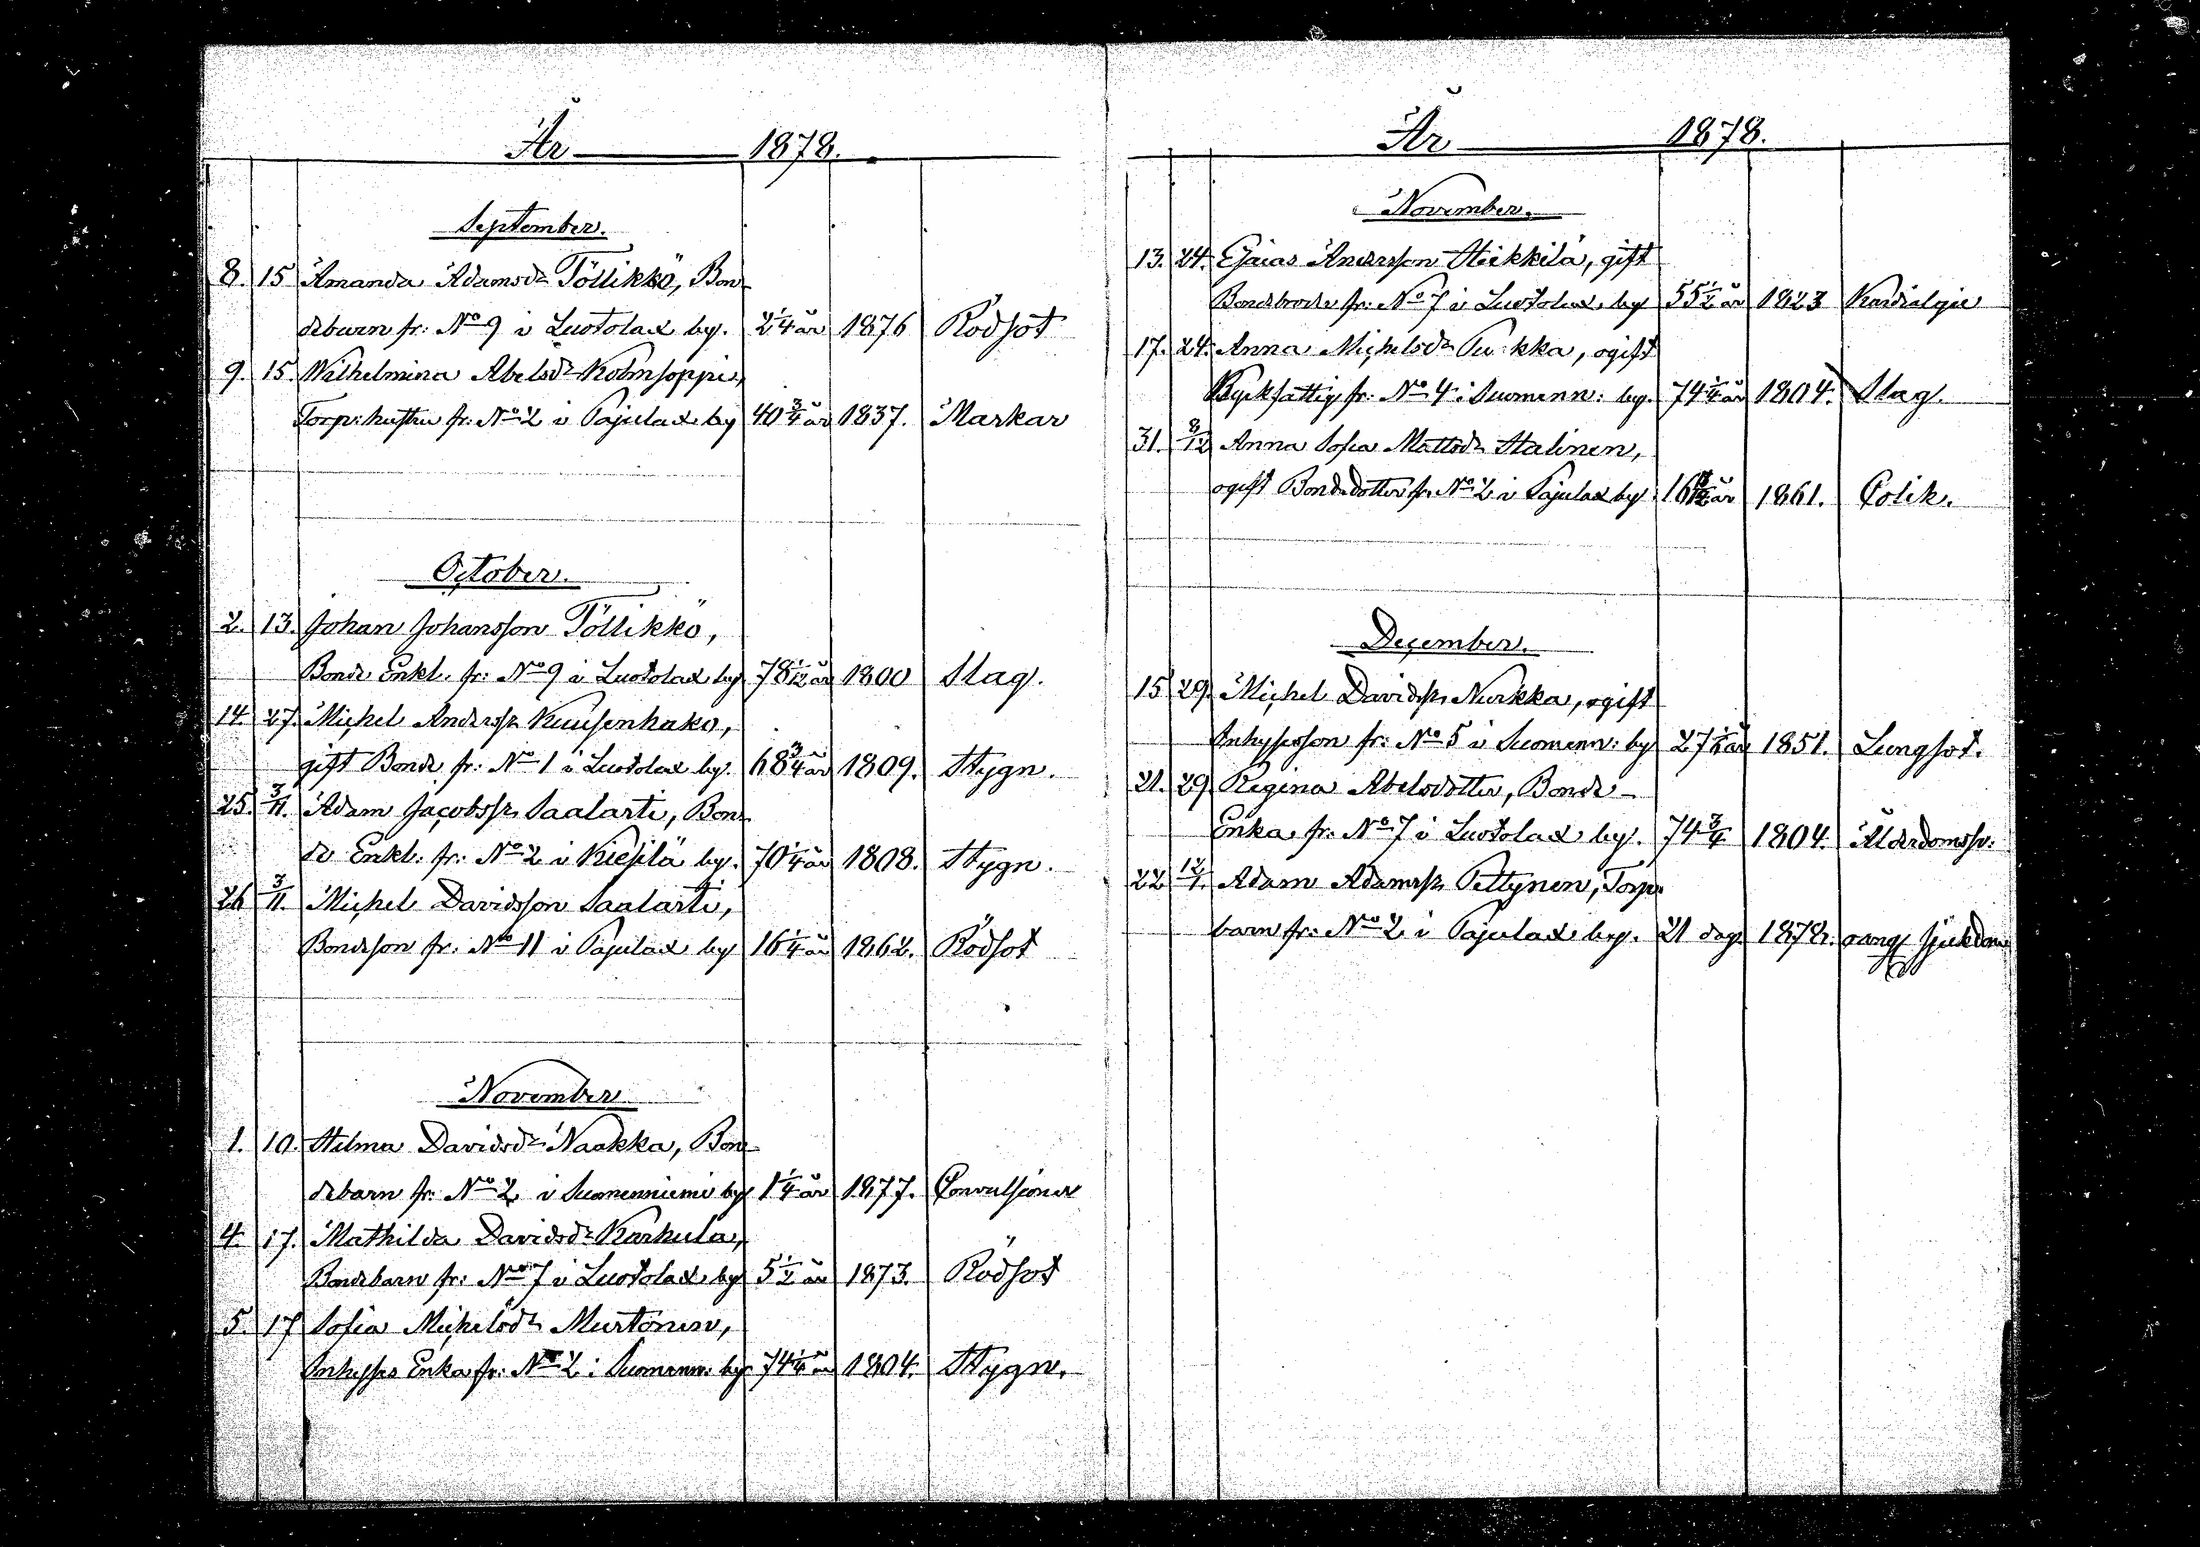 År 1878.
September.
8. 15 Amanda Adamsdr Töllikkö, Bon-
debarn fr: No 9 i Luotolax by. 2 1/4 år 1876 Rödsot
9. 15. Wilhelmina Abelsdr Kolmsoppi,
Torp: hustru fr: No 2 i Pajulax by 40 3/4 år 1837. Maskar
October.
2. 13. Johan Johansson Töllikkö,
Bonde Enkl. fr: No 9 i Luotolax by 78 1/2 år 1800 Slag.
14. 27. Michel Anderss: Kuusenhako,
gift Bonde fr: No 1 i Luotolax by. 68 3/4 år 1809. Stygn.
25. 3/11. Adam Jacobss: Saalasti, Bon-
de Enkl: fr: No 2 i Kiesilä by. 70 1/4 år 1808. Stygn.
26 3/11. Michel Davidsson Saalasti,
Bondeson fr: No 11 i Pajulax by 16 1/4 år 1862. Rödsot
November
1. 10. Hilma Davidsdr Naakka, Bon-
debarn fr: No 2 i Suomenniemi by 1 1/4 år 1877. Convulsioner
4. 17. Mathilda Davidsdr Karhula,
Bondebarn fr: No 7 i Luotolax by 5 1/2 år 1873. Rödsot
5. 17 Sofia Michelsdr Murtonen,
Inhyses Enka fr: No 2 i Suomenn: by 74 1/4 år 1804. Stygn.
År 1878.
November.
13. 24. Esaias Andersson Heikkilä, gift
Bondebroder fr: No 7 i Luotolax by 55 1/2 år 1823 Kardialgie
17. 24. Anna Michelsdr ogift
fr: No 4 i Suomenn: by. 74 1/4 år 1804. Slag.
31. 8/12 Anna Sofia Mattsdr Halinen,
ogift Bondedotter fr: No 2 i Pajulax by. år 1861. Colik.
December.
15 29. Michel Davidss: Nurkka, ogift
Inhysesson fr: No 5 i Suomenn: by 27 1/2 år 1851. Lungsot.
21. 29 Regina Abelsdotter, Bonde-
Enka fr: No 7 i Luotolax by. 74 3/4 1804. Ålderdomssv:
22 12/1. Adam Adamss: Pettynen, Torp:
barn fr: No 2 i Pajulax by. 21 dag. 1878. oang: sjukdom